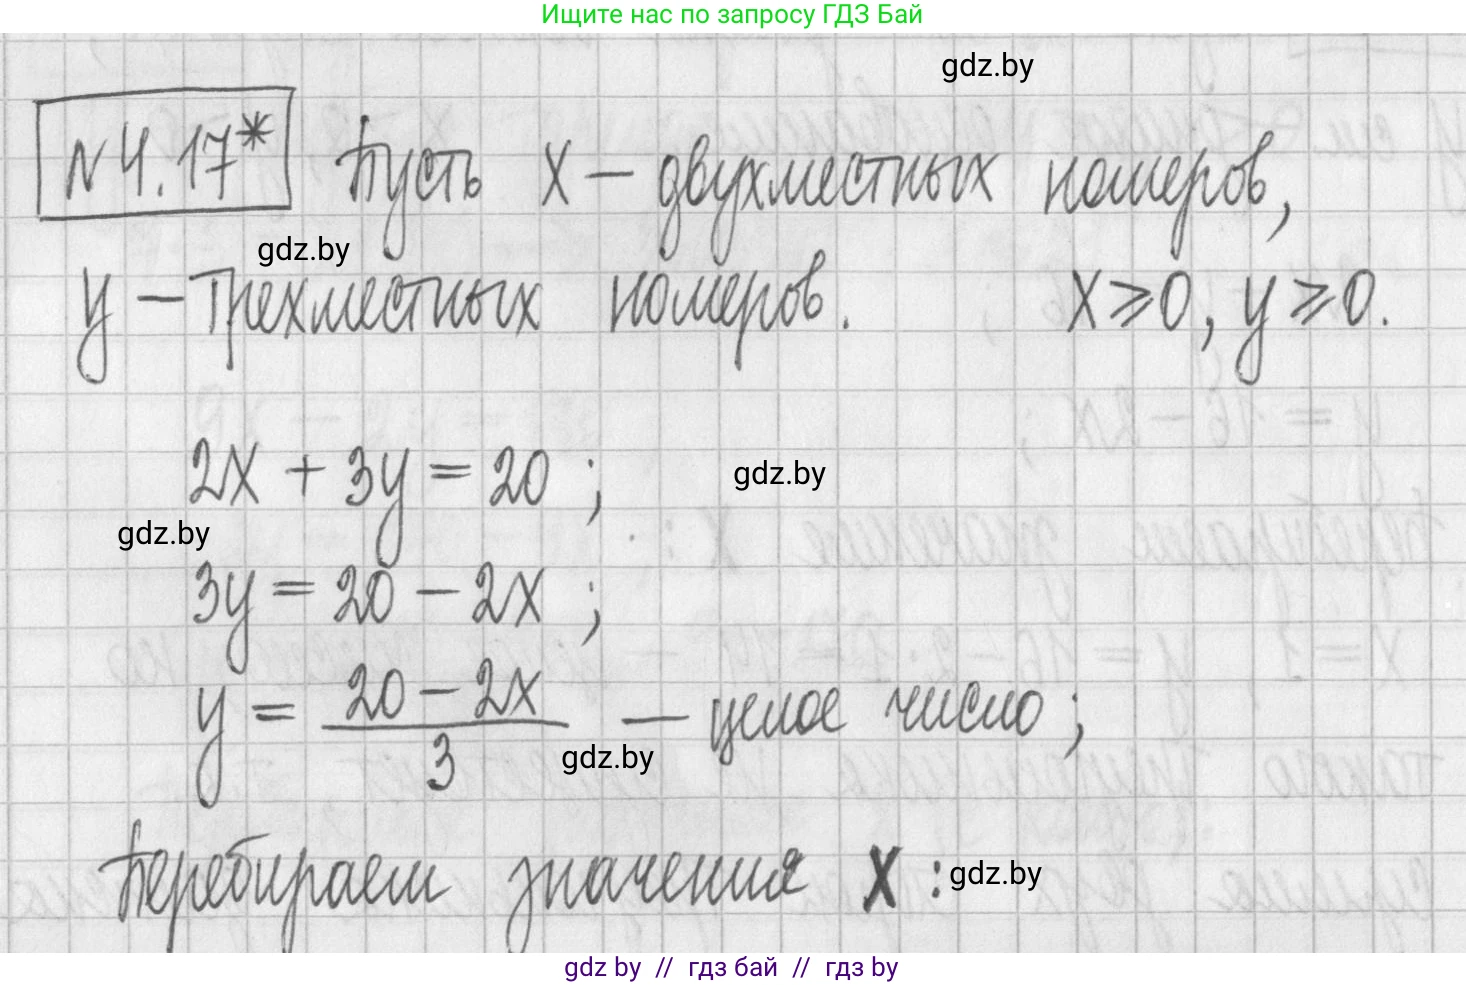 Ищите нас по запросу ГДЗ Бай
gdz.by
№4.17* Пусть x – двухместных номеров,
gdz.by
y – трехместных номеров. x ⩾ 0, y ⩾ 0.
2x + 3y = 20 ;
gdz.by
gdz.by
3y = 20 – 2x ;
y = \frac{20 – 2x}{3} — целое число ;
gdz.by
Перебираем значения x :
gdz.by
gdz by // гдз бай // гдз by